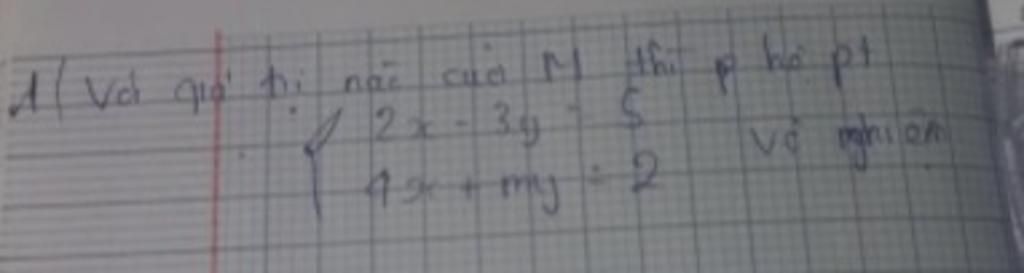 1/ Với giá trị nào của M thì p hệ pt
2x - 3y = 5
4x + my = 2 vô nghiệm